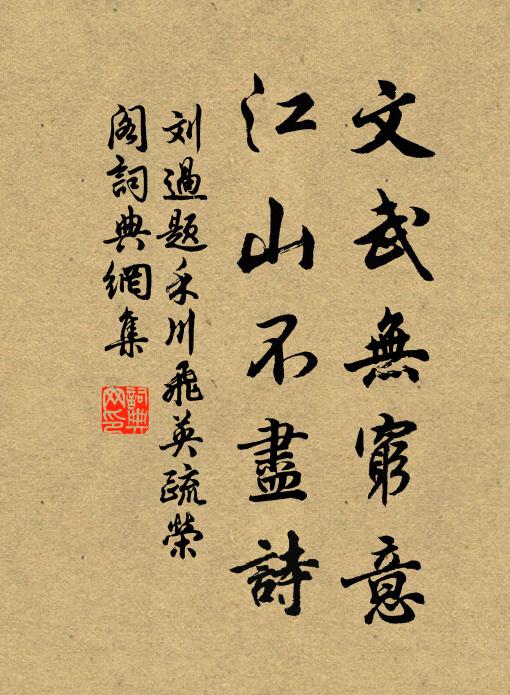 文武無窮意
江山不盡詩
刘過題禾川飛英疏榮
閣詞典網集
詞典
网印